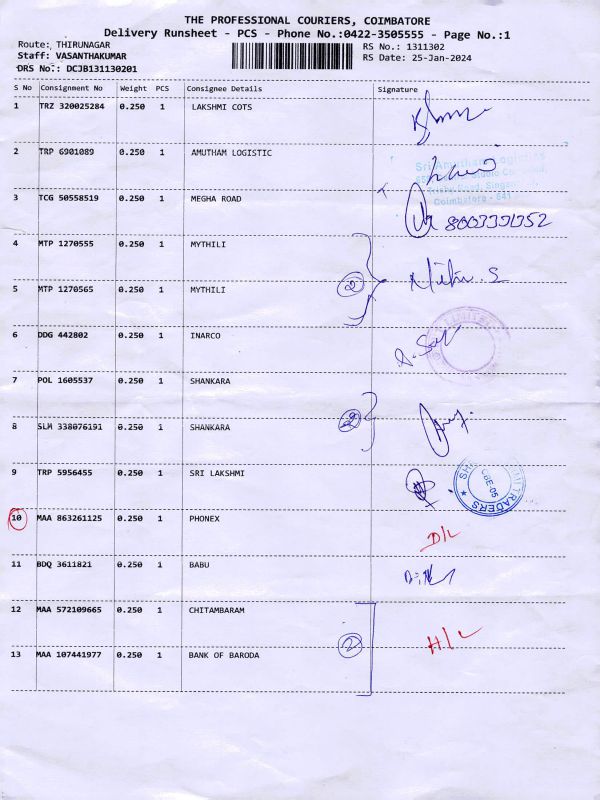 THE PROFESSIONAL COURIERS, COIMBATORE
Delivery Runsheet - PCS - Phone No.:0422-3505555 - Page No.:1
Route: THIRUNAGAR
RS No.: 1311302
Staff: VASANTHAKUMAR
RS Date: 25-Jan-2024
DRS No.: DCJB131130201
S No Consignment No Weight PCS Consignee Details Signature
1 TRZ 320025284 0.250 1 LAKSHMI COTS
2 TRP 6901089 0.250 1 AMUTHAM LOGISTIC
Sri Amutham Logistics
Coimbatore - 641
3 TCG 50558519 0.250 1 MEGHA ROAD
4 MTP 1270555 0.250 1 MYTHILI
2
5 MTP 1270565 0.250 1 MYTHILI
6 DDG 442802 0.250 1 INARCO
7 POL 1605537 0.250 1 SHANKARA
2
8 SLM 338076191 0.250 1 SHANKARA
9 TRP 5956455 0.250 1 SRI LAKSHMI
CBE-05
TRADERS
10 MAA 863261125 0.250 1 PHONEX
D/L
11 BDQ 3611821 0.250 1 BABU
12 MAA 572109665 0.250 1 CHITAMBARAM
2 H/L
13 MAA 107441977 0.250 1 BANK OF BARODA